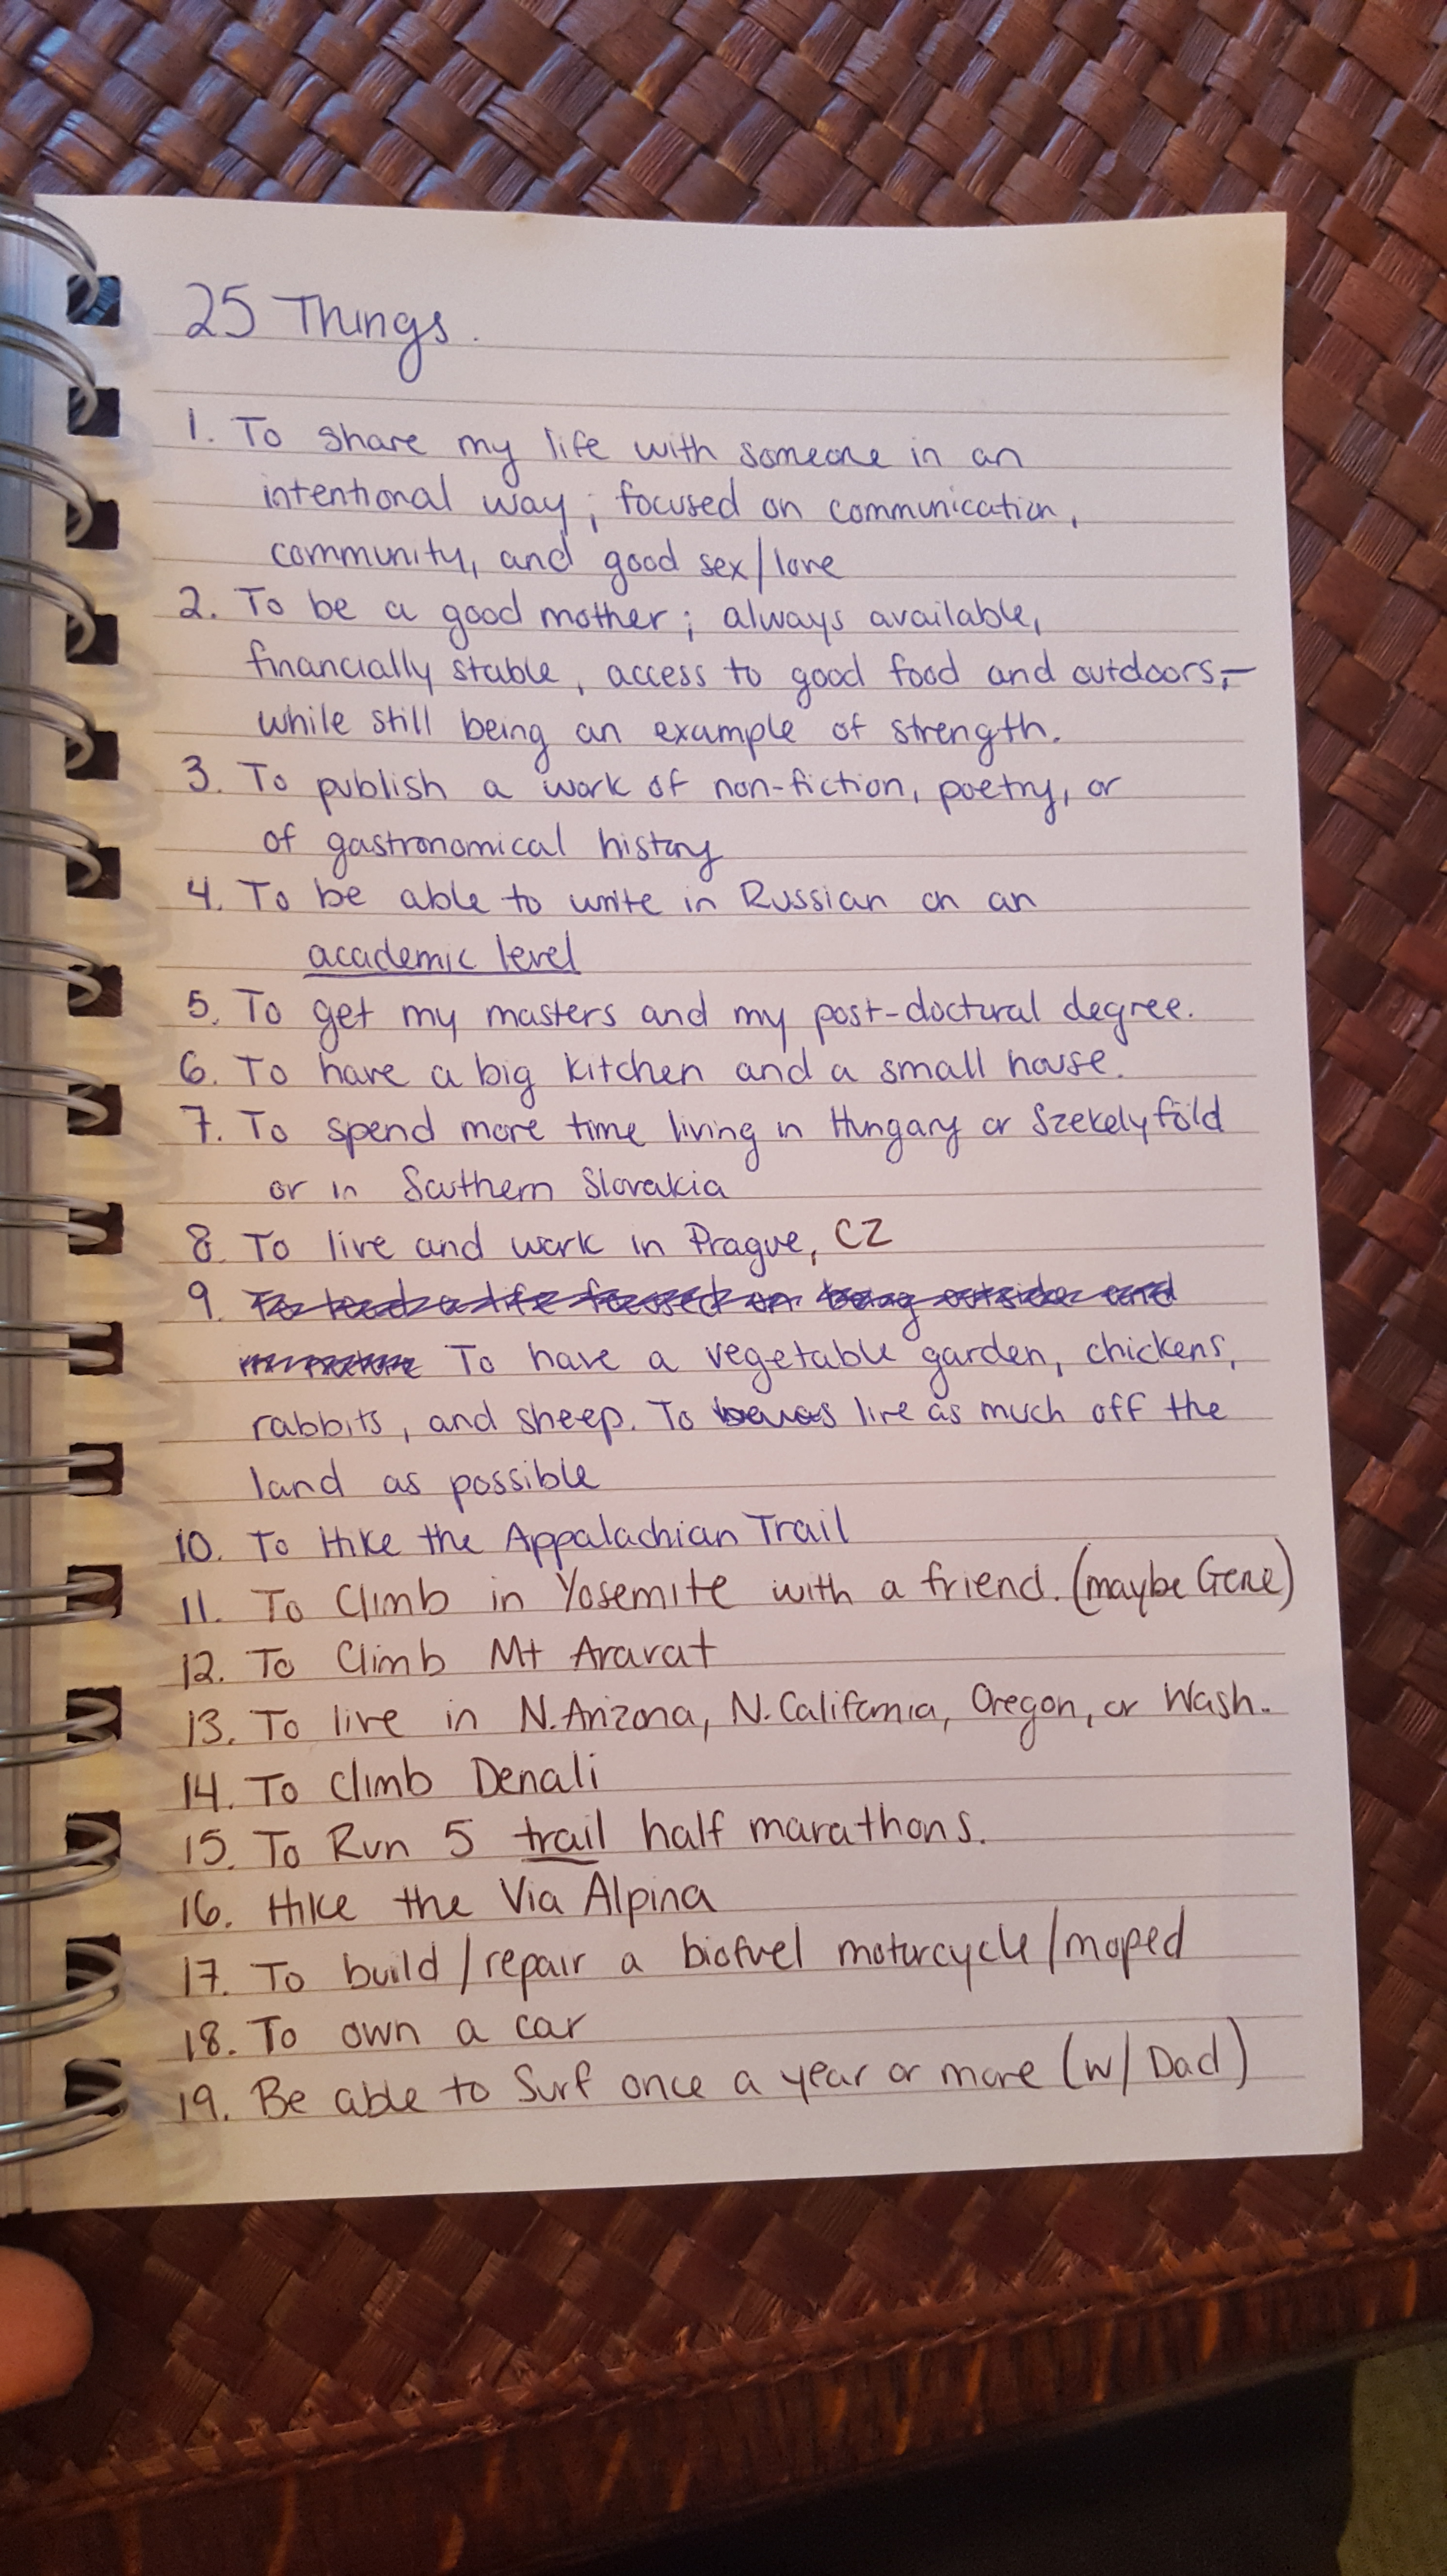 25 Things.
1. To share my life with someone in an
intentional way; focused on communication,
community, and good sex/love
2. To be a good mother; always available,
financially stable, access to good food and outdoors,-
while still being an example of strength.
3. To publish a work of non-fiction, poetry, or
of gastronomical history
4. To be able to write in Russian on an
academic level
5. To get my masters and my post-doctural degree.
6. To have a big kitchen and a small house.
7. To spend more time living in Hungary or Szekelyföld
or in Southern Slovakia
8. To live and work in Prague, CZ
9. To lead a life focused on being outside and
To have a vegetable garden, chickens,
rabbits, and sheep. To live as much off the
land as possible
10. To Hike the Appalachian Trail
11. To Climb in Yosemite with a friend. (maybe Gene)
12. To Climb Mt Ararat
13. To live in N. Arizona, N. California, Oregon, or Wash.
14. To Climb Denali
15. To Run 5 trail half marathons.
16. Hike the Via Alpina
17. To build/repair a biofuel motorcycle/moped
18. To own a car
19. Be able to Surf once a year or more (w/ Dad)